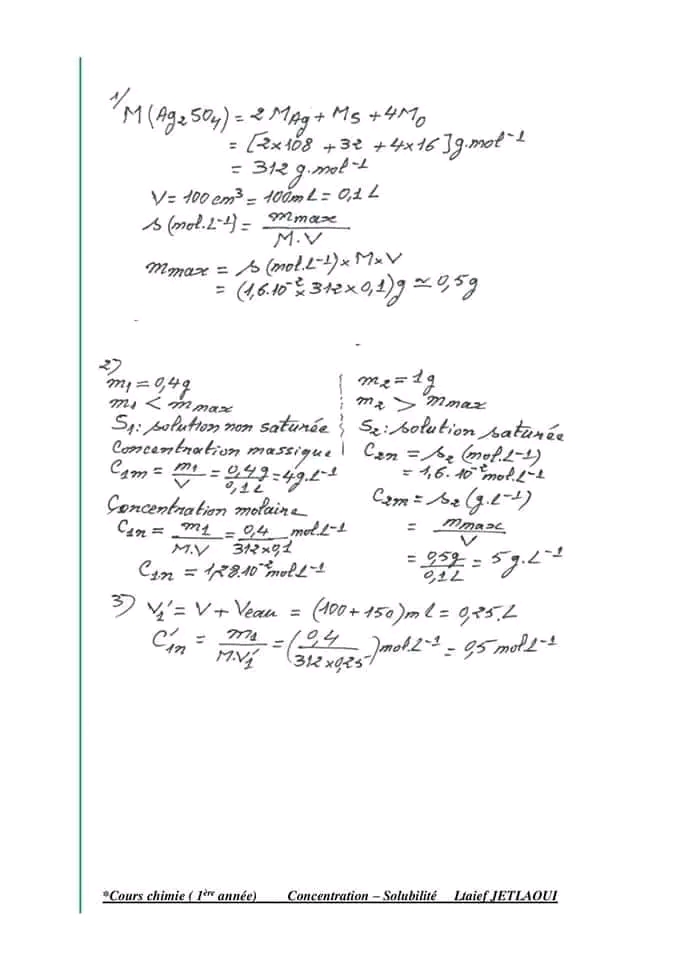 1/
M(Ag2SO4) = 2 MAg + MS + 4MO
= [2x108 + 32 + 4x16] g.mol⁻¹
= 312 g.mol⁻¹
V = 100 cm³ = 100mL = 0,1 L
s(mol.L⁻¹) = mmax / M.V
mmax = s(mol.L⁻¹) x M x V
= (1,6.10⁻² x 312 x 0,1)g ≃ 0,5g
2)
m1 = 0,4g
m1 < mmax
S1: solution non saturée
Concentration massique
C1m = m1/V = 0,4g/0,1L = 4g.L⁻¹
Concentration molaire
C1n = m1/M.V = 0,4/312x0,1 mol.L⁻¹
C1n = 1,28.10⁻² mol L⁻¹
m2 = 1g
m2 > mmax
S2: solution saturée
C2n = s2 (mol.L⁻¹)
= 1,6.10⁻² mol.L⁻¹
C2m = s2 (g.L⁻¹)
= mmax / V
= 0,5g/0,1L = 5 g.L⁻¹
3) V1' = V + Veau = (100 + 150) ml = 0,25.L
C'1n = m1/M.V1' = (0,4/312x0,25) mol.L⁻¹ = 0,5 mol L⁻¹
*Cours chimie ( 1ère année) Concentration – Solubilité Ltaief JETLAOUI